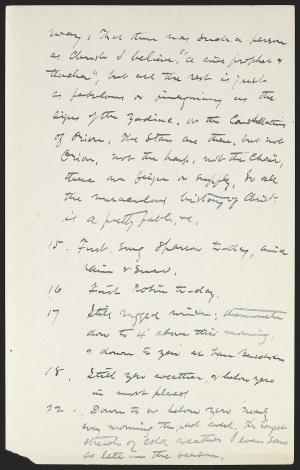 way, That there was such a person
as Christ I believe, "a nice prophet &
teacher", but all the rest is just
as fabulous or imaginary as the
signs of the Zodiac, or the Constellation
of Orion. The Stars are there, but not
Orion, not the harp, not the Chair,
these we feign or supply. So all
the miraculous history of Christ
is a pretty fable, &c.
15. First Song Sparrow to-day, amid
rain & snow.
16 First Robin to-day.
17 Still rugged winter; thermometer
down to 4° above this morning,
& down to zero at
18. Still zero weather, & below zero
in most places
22. Down to or below zero nearly
every morning the past week. The longest
stretch of cold weather I ever saw
as late in the season.